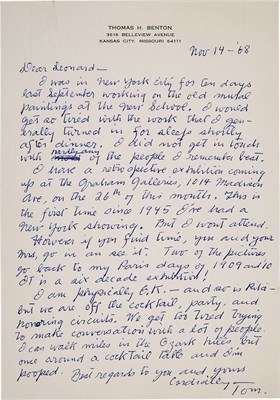 THOMAS H. BENTON
3616 BELLEVIEW AVENUE
KANSAS CITY, MISSOURI 64111
Nov 14 - 68
Dear Leonard —
I was in New York City for ten days
last September working on the old mural
paintings at the New School. I would
get so tired with the work that I gen-
erally turned in for sleep shortly
after dinner. I did not get in touch
with hardly any of the people I remember best.
I have a retrospective exhibition coming
up at the Graham Galleries, 1014 Madison
Ave, on the 26th of this month. This is
the first time since 1945 I've had a
New York showing. But I wont attend.
However if you find time, you and your
Mrs, go in an see it. Two of the pictures
go back to my Paris days of 1909 and 10
It is a six decade exhibition.
I am physically O.K. — and so is Rita —
but we are off the cocktail, party, and
honoring circuits. We get too tired trying
to make conversation with a lot of people.
I can walk miles in the Ozark hills but
once around a cocktail table and I'm
pooped. Best regards to you and yours
Cordially
Tom.